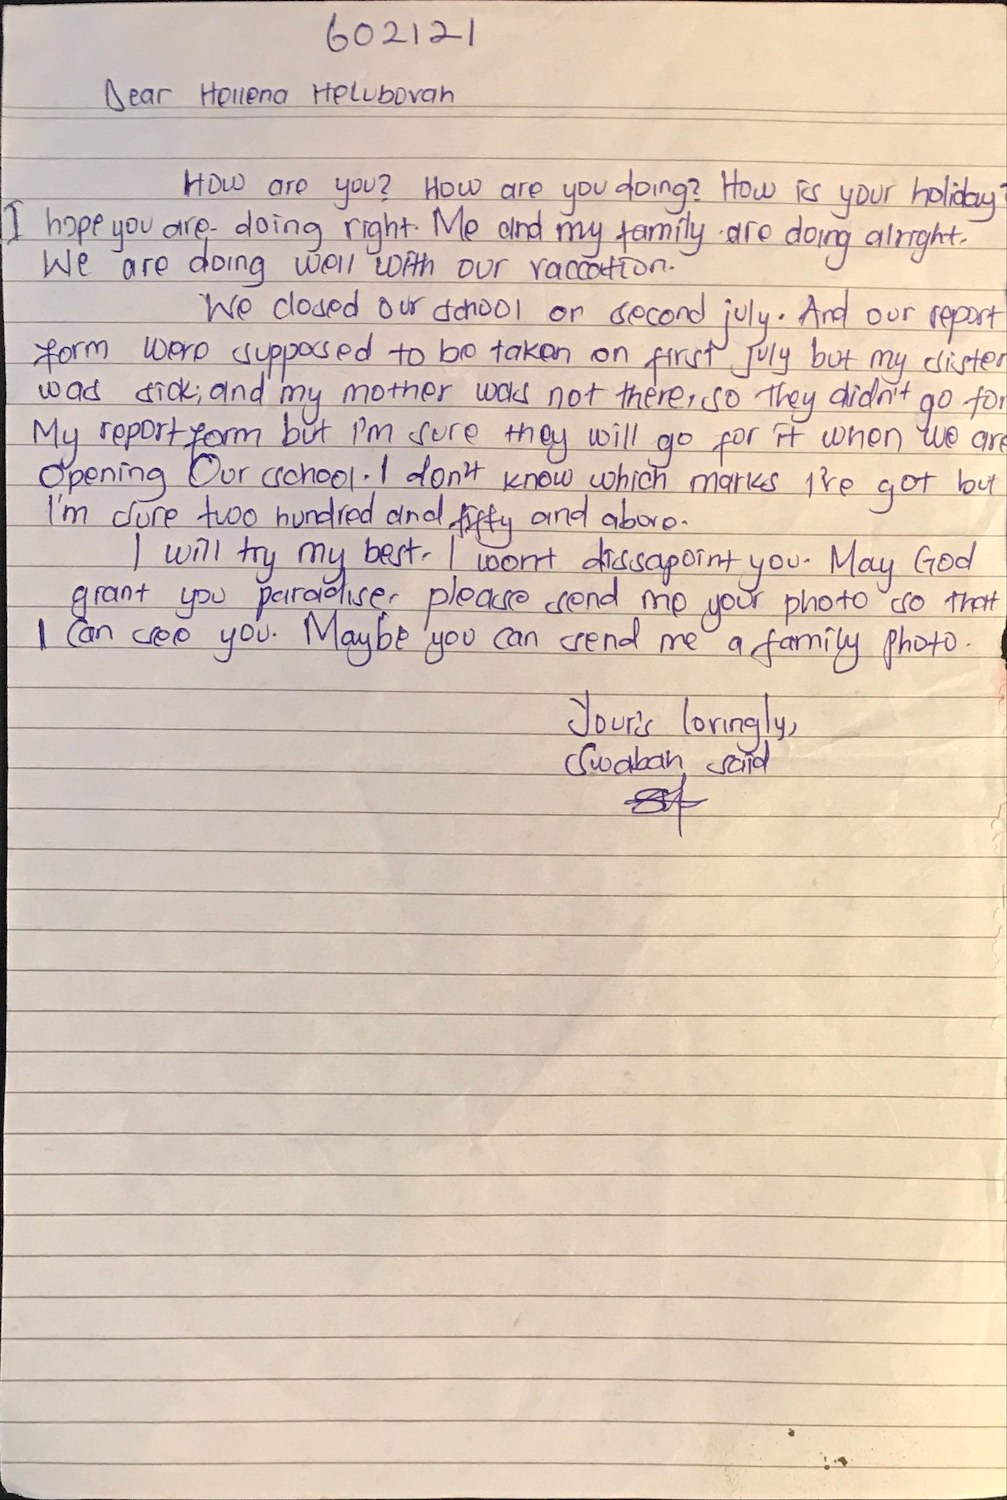 602121
Dear Hellena Helubovah
How are you? How are you doing? How is your holiday?
I hope you are doing right. Me and my family are doing alright.
We are doing well with our vaccation.
We closed our school on second july. And our report
form were supposed to be taken on first july but my sister
was sick, and my mother was not there, so they didn't go for
My report form but I'm sure they will go for it when we are
opening Our school. I don't know which marks I've got but
I'm sure two hundred and fifty and above.
I will try my best. I won't dissapoint you. May God
grant you paradise, please send me your photo so that
I can see you. Maybe you can send me a family photo.
Your's lovingly,
Swabah said